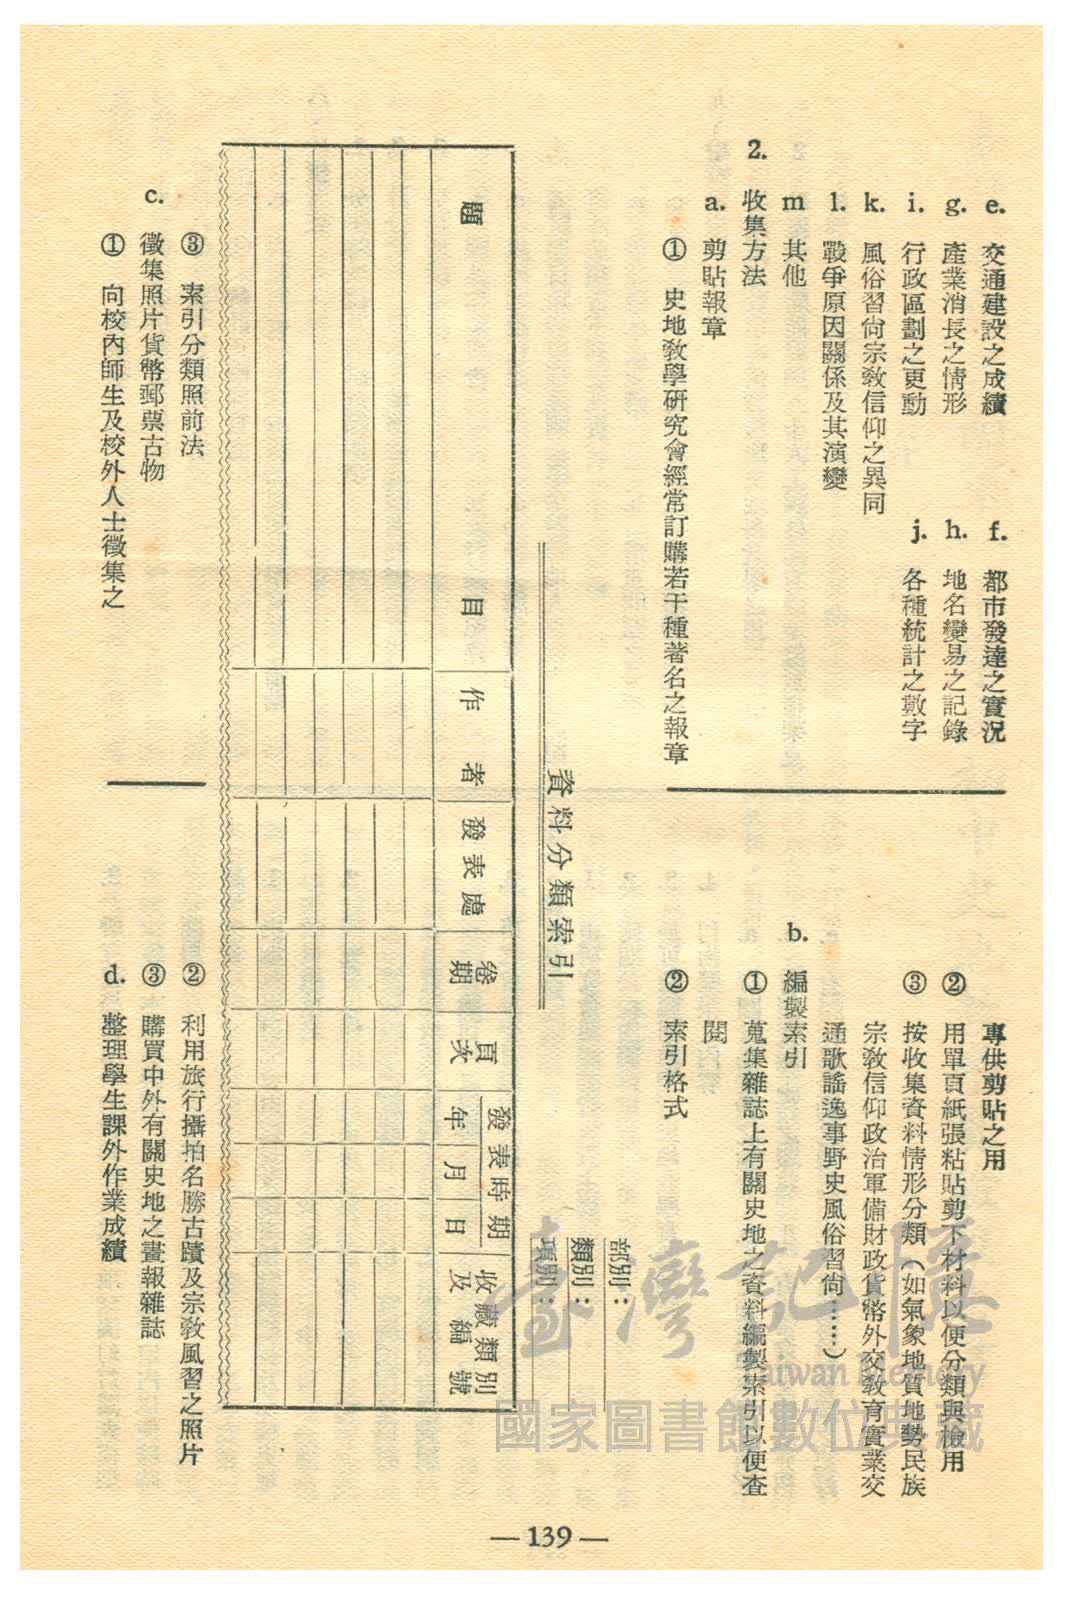 e. 交通建設之成績
f. 都市發達之實況
g. 產業消長之情形
h. 地名變易之記錄
i. 行政區劃之更動
j. 各種統計之數字
k. 風俗習尙宗敎信仰之異同
l. 戰爭原因關係及其演變
m 其他
2. 收集方法
a. 剪貼報章
① 史地敎學硏究會經常訂購若干種著名之報章
專供剪貼之用
② 用單頁紙張粘貼剪下材料以便分類與檢用
③ 按收集資料情形分類（如氣象地質地勢民族
宗敎信仰政治軍備財政貨幣外交敎育實業交
通歌謠逸事野史風俗習尙……）
b. 編製索引
① 蒐集雜誌上有關史地之資料編製索引以便查
閱
② 索引格式
部別：
類別：
項別：
資料分類索引
題目
作者
發表處
卷期
頁次
發表時期
年
月
日
收藏類別及編號
③ 索引分類照前法
c. 徵集照片貨幣郵票古物
① 向校內師生及校外人士徵集之
② 利用旅行攝拍名勝古蹟及宗敎風習之照片
③ 購買中外有關史地之畫報雜誌
d. 整理學生課外作業成績
—139—
臺灣記憶
Taiwan Memory
國家圖書館數位典藏